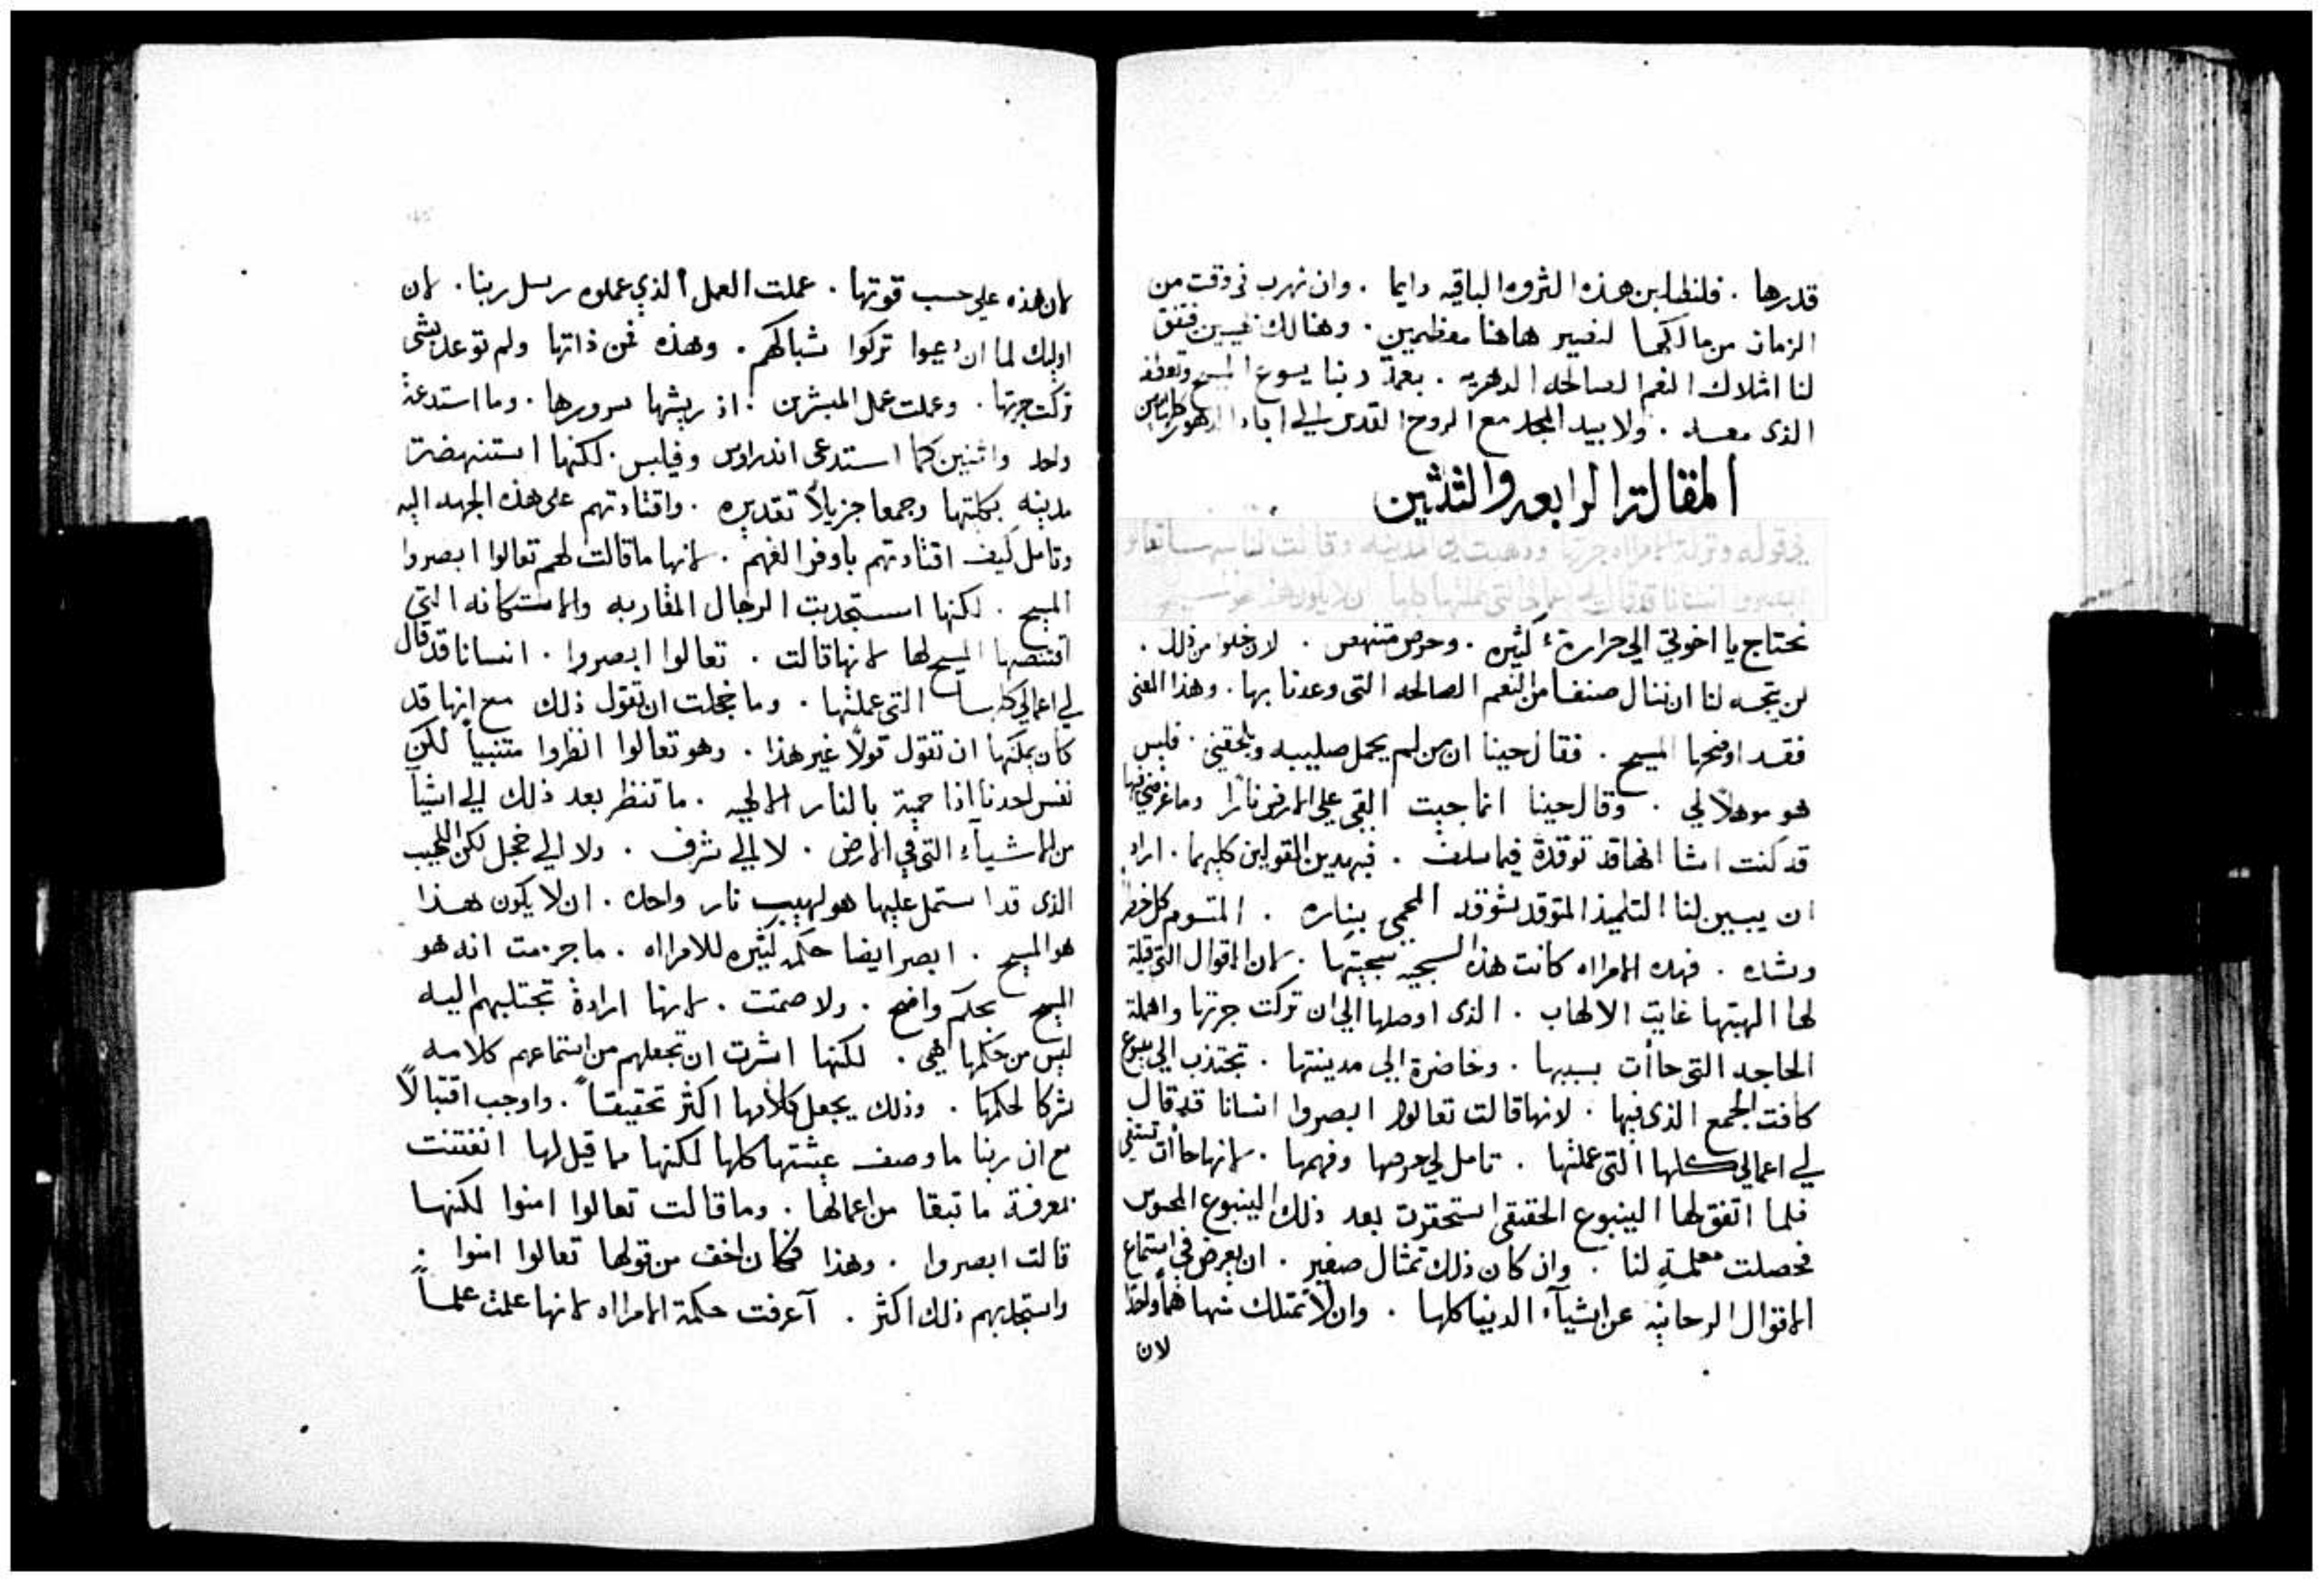 قدرها . فلنطلبن هذه الثروه الباقيه دايما . وان نهرب في وقت من
الزمان من مالكها لنصير هاهنا معظمين . وهنالك
لنا امثلاك النعم الصالحه الدهريه . بنعمة ربنا يسوع المسيح وتعطفه
الذى معه . ولابيه المجد مع الروح القدس الي اباد الدهور كلها امين
المقالة الرابعه والثلثين
في قوله وتركة الامراه جرتها وذهبت الي المدينه وقالت للناس تعالوا
ابصروا انسانا قد قال لي اعمالي التي عملتها كلها ان لا يكون هذا هو المسيح
نحتاج يا اخوتي الي حرارةٍ كثيره . وحرص منتهض . لان خلوا من ذلك .
لن يتجه لنا ان ننال صنفا من النعم الصالحه التى وعدنا بها . وهذا المعنى
فقد اوضحها المسيح . فقال حينا ان من لم يحمل صليبه ويلحقني . فليس
هو موهلاً لي . وقال حينا انما جيت القي علي الارض ناراً وما غرضي فيها
قد كنت اشا انها قد توقدة فيما سلف . فبهدين القولين كليهما . اراد
ان يبين لنا التلميذ المتوقد بتوقد المحمى بناره . المتسوم كل خطر
وشده . فهده الامراه كانت هذه السجيه سجيتها . لان الاقوال التي قيلة
لها الهبتها غايت الالهاب . الذى اوصلها الي ان تركت جرتها واهملة
الحاجه التى جاأت بسببها . وحاضرة الي مدينتها . تجتذب الي ينبوع
كافت الجمع الذى فيها . لانها قالت تعالوا ابصروا انسانا قد قال
لي اعمالي كلها التى عملتها . تامل لي حرصها وفهمها . لانها جاأت تستقي
فلما اتفق لها الينبوع الحقيقى استحقرت بعد ذلك الينبوع المحسوس
فحصلت معلمةٍ لنا . وان كان ذلك تمثال صغير . ان يعرض في استماع
الاقوال الرحانيه عن اشيآء الدنيا كلها . وان لا نمتلك منها هماً واحدا
لان
لان هذه علي حسب قوتها . عملت العمل الذي عملوه رسل ربنا . لان
اوليك لما ان دعيوا تركوا شباكهم . وهذه فمن ذاتها ولم توعد بشى
تركت جرتها . وعملت عمل المبشرين . اذ ريشها سرورها . وما استدعة
واحد واثنين كما استدعى اندراوس وفيلبس . لكنها استنهضة
مدينه بكليتها وجمعا جزيلاً تقديره . واقتادتهم على هذه الجهه اليه
وتامل كيف اقتادتهم باوفر الفهم . لانها ما قالت لهم تعالوا ابصروا
المسيح . لكنها استجدبت الرجال المقاربه والاستكانه التي
اقتنصها المسيح لها لانها قالت . تعالوا ابصروا . انسانا قد قال
لي اعمالي كلها التى عملتها . وما خجلت ان تقول ذلك مع انها قد
كان يمكنها ان تقول قولاً غير هذا . وهو تعالوا انظروا متنبياً لكن
نفس احدنا اذا حمية بالنار الالهيه . ما تنظر بعد ذلك الي اشيآ
من الاشيآء التي في الارض . لا الي شرف . ولا الي خجل لكن اللهيب
الذى قد استمل عليها هو لهيب نار واحده . ان لا يكون هذا
هو المسيح . ابصر ايضا حكمه كثيره للامراه . ما جزمت انه هو
المسيح بحكم واضح . ولا صمتت . لانها ارادة تجتلبهم اليه
ليس من حكمها هي . لكنها اشرت ان تجعلهم من استماعهم كلامه
شركا لحكمها . وذلك يجعل كلامها اكثر تحقيقاً . واوجب اقتبالاً
مع ان ربنا ما وصف عيشتها كلها لكنها مما قيل لها انفتنت
بمعرفة ما تبقا من اعمالها . وما قالت تعالوا امنوا لكنها
قالت ابصروا . وهذا فكان اخف من قولها تعالوا امنوا .
واستجلبهم ذلك اكثر . آعرفت حكمة الامراه لانها علمت علماً